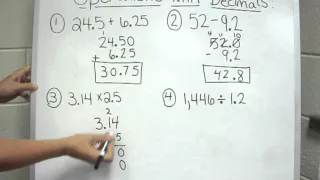 Operations with Decimals
① 24.5 + 6.25
1
24.50
+ 6.25
30.75
② 52 - 9.2
52.0
- 9.2
42.8
③ 3.14 × 2.5
2
3.14
5
0
0
④ 1,446 ÷ 1.2